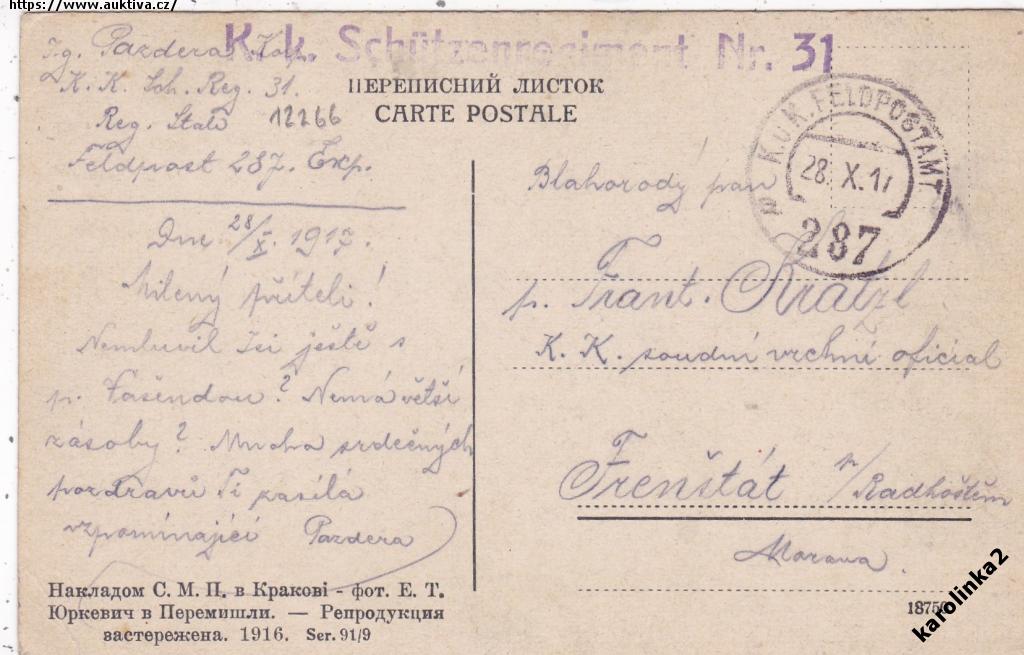 https://www.auktiva.cz/
K. k. Schützenregiment Nr. 31
Pazdera
K. K. Sch. Reg. 31.
Reg. Stab 12266
Feldpost 287. Exp.
ПЕРЕПИСНИЙ ЛИСТОК
CARTE POSTALE
K.u.K. FELDPOSTAMT
28. X. 17
287
Dne 28/X. 1917.
Milený příteli!
Nemluvil jsi ještě s
p. ? Nemá větší
zásoby? Mnoho srdečných
pozdravů Ti zasílá
vzpomínající Pazdera
Blahorodý pan
p. Frant. Kratzl
K. K. soudní vrchní oficial
Frenštát p/Radhoštěm
Morava.
Накладом С. М. П. в Кракові - фот. Е. Т.
Юркевич в Перемишли. — Репродукция
вастережена. 1916. Ser. 91/9
karolinka2